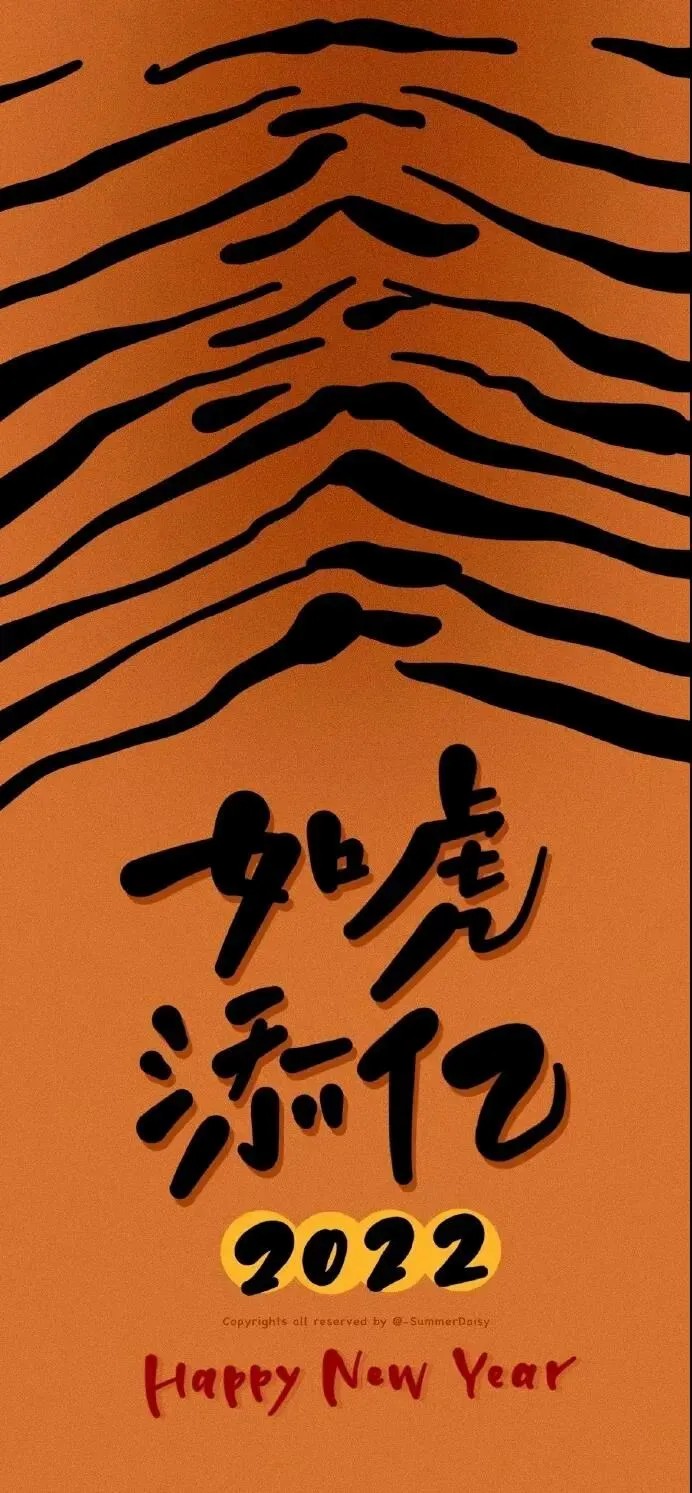 如虎
添亿
2022
Copyrights all reserved by @-SummerDaisy
Happy New Year